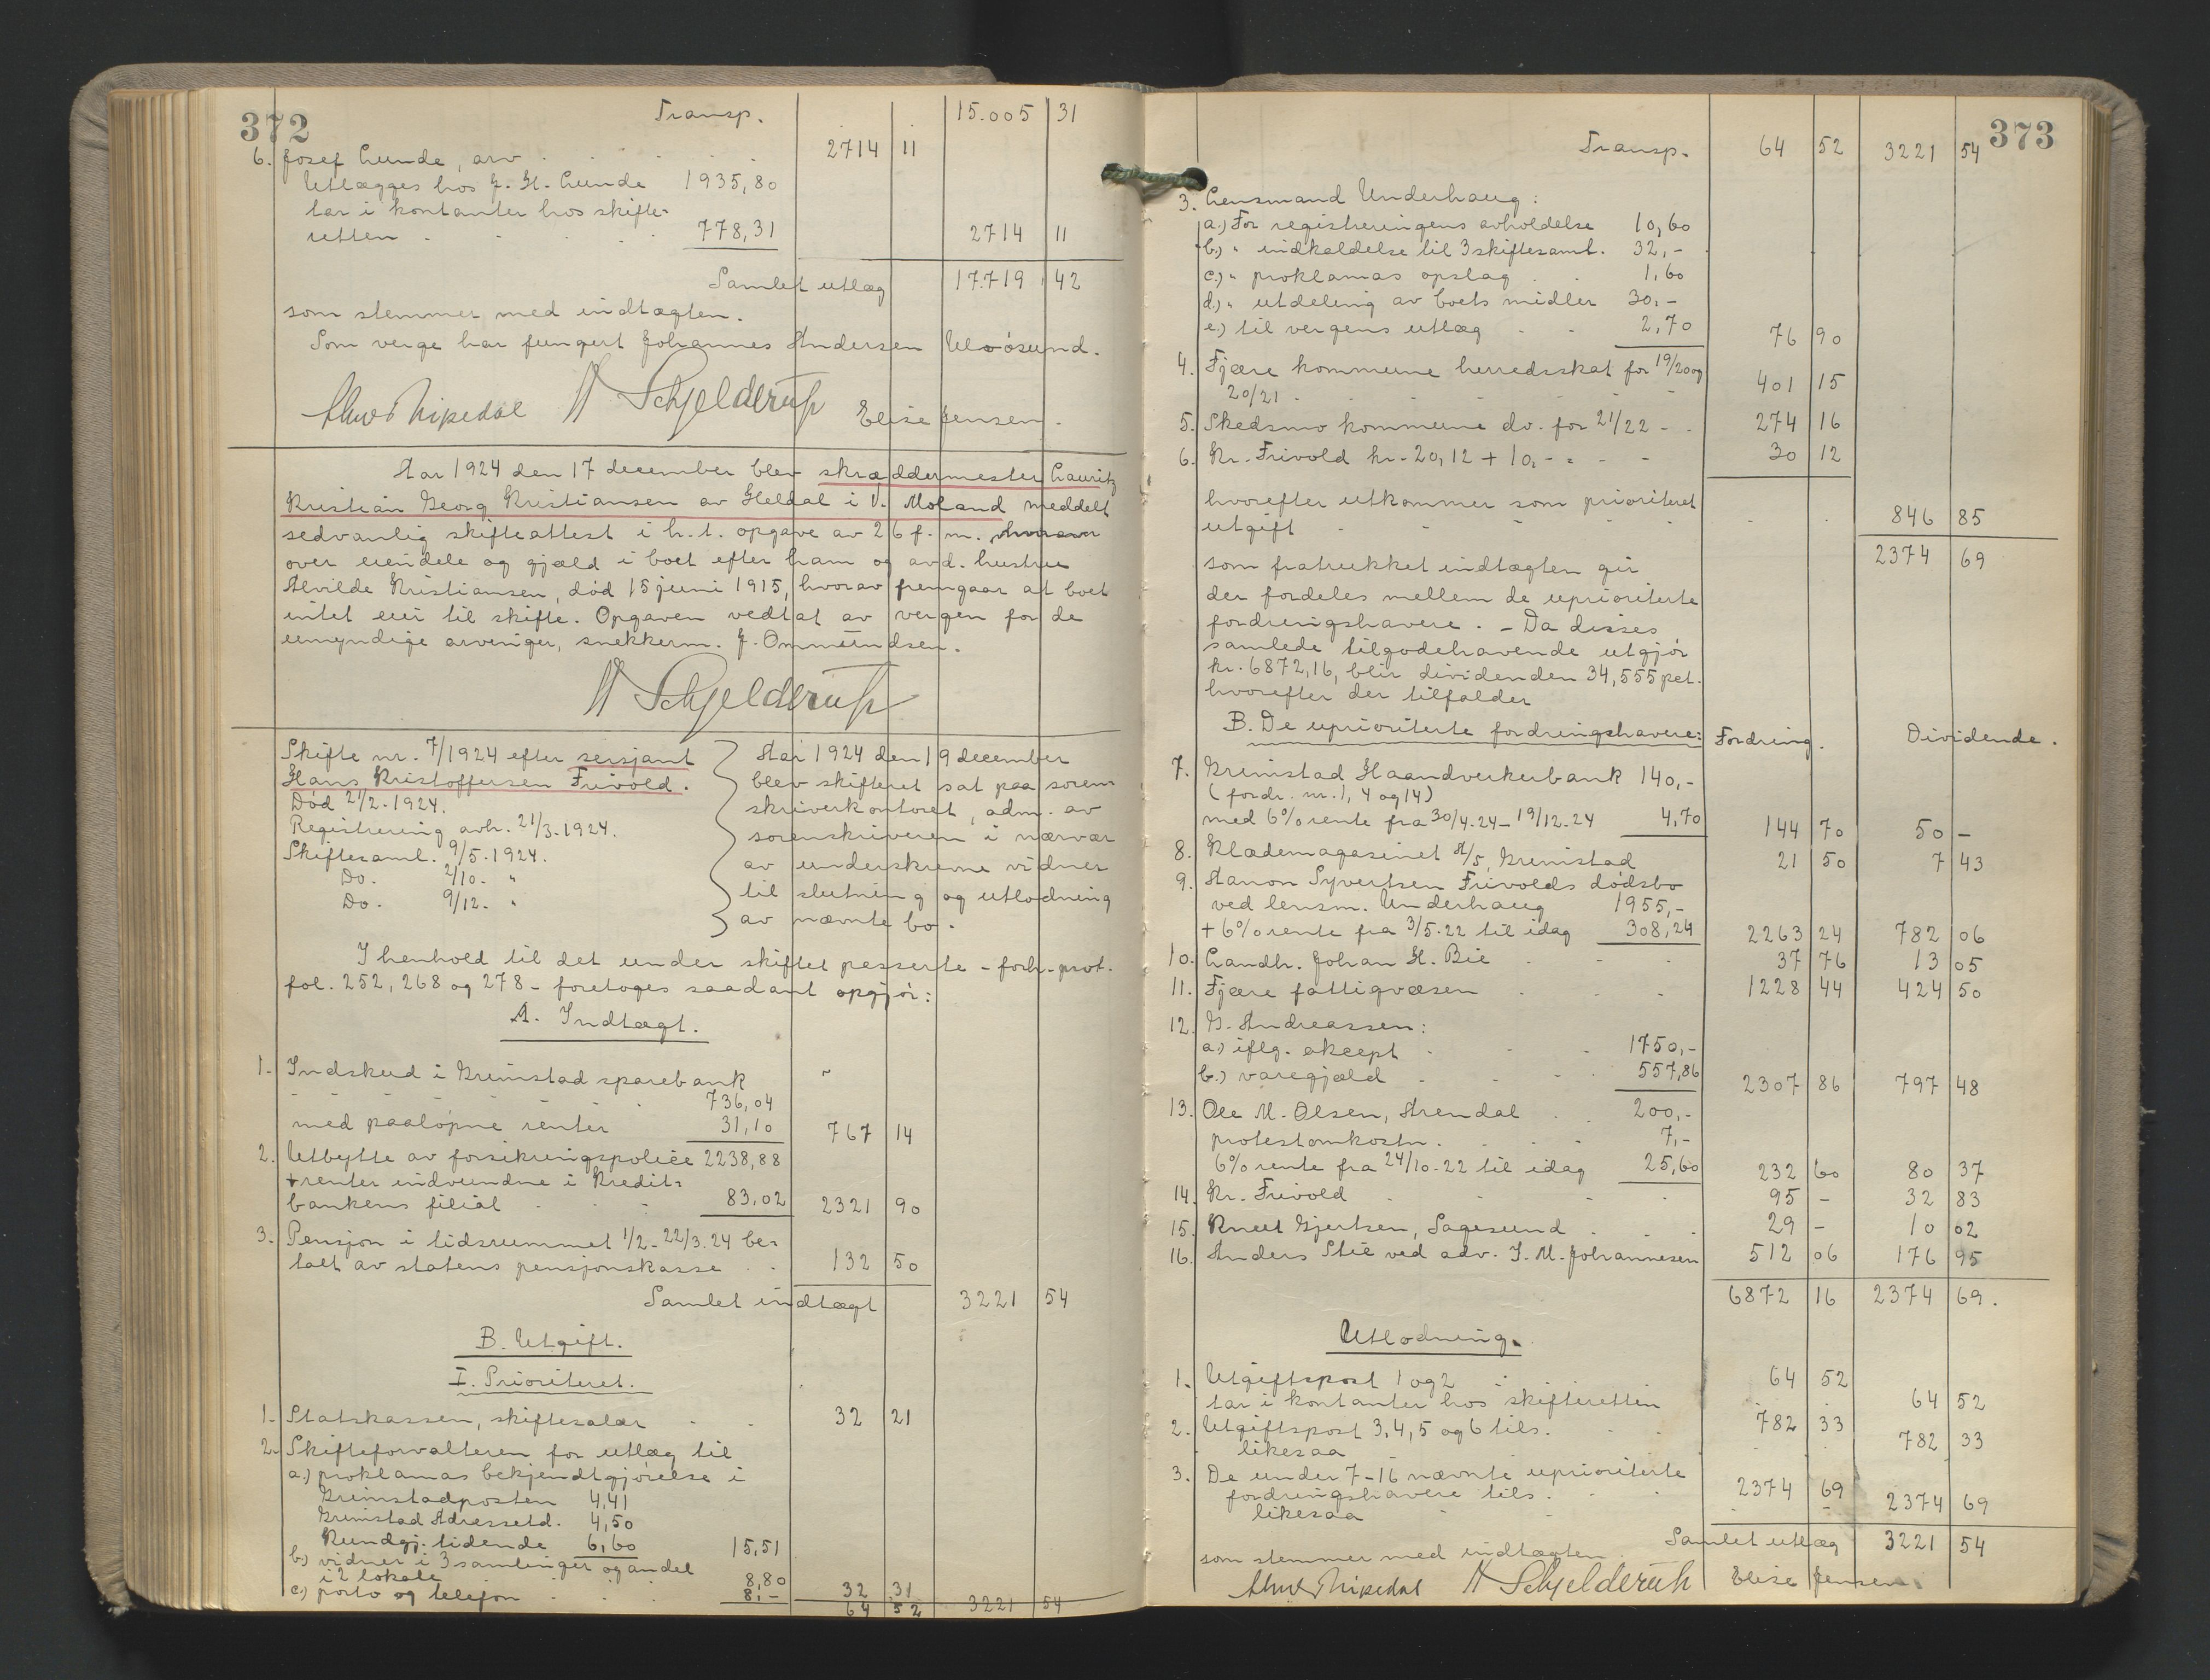 372
Transp. 15.005 31
6. Josef Lunde, arv 2714 11
Utlægges hos J. H. Lunde 1935,80
tar i kontanter hos skifte-
retten 778,31 2714 11
Samlet utlæg 17.719 42
som stemmer med indtægten.
Som verge har fungert Johannes Andersen Ulvøsund.
H Schjelderup Elise Jensen.
Aar 1924 den 17 december blev skræddermester Lauritz
Kristian Georg Kristiansen av Heldal i V. Moland meddelt
sedvanlig skifteattest i h. t. opgave av 26 f. m.
over eiendele og gjæld i boet efter ham og avd. hustru
Alvilde Kristiansen, død 15 juni 1915, hvorav fremgaar at boet
intet eier til skifte. Opgaven vedtat av vergen for de
umyndige arvinger, snekkerm. J. Ommundsen.
H Schjelderup
Skifte nr. 7/1924 efter sersjant
Hans Kristoffersen Frivold.
Død 21/2-1924.
Registrering avh. 21/3-1924.
Skiftesaml. 9/5-1924.
Do. 2/10- "
Do. 9/12- "
Aar 1924 den 19 december
blev skifteret sat paa soren-
skriverkontoret, adm. av
sorenskriveren i nærvær
av underskrevne vidner
til slutning og utlodning
av nævnte bo.
I henhold til det under skiftet passerte - forh.-prot.
fol. 252, 268 og 278 - foretoges saadant opgjør:
A. Indtægt.
1. Indskud i Grimstad sparebank
736,04
med paaløpne renter 31,10 767 14
2. Utbytte av forsikringspolice 2238,88
+ renter indvundne i Kredit-
bankens filial 83,02 2321 90
3. Pensjon i tidsrummet 1/2-22/3.24 be-
talt av statens pensjonskasse 132 50
Samlet indtægt 3221 54
B. Utgift.
I. Prioritert.
1. Statskassen, skiftesalær 32 21
2. Skifteforvalteren for utlæg til
a.) proklamas bekjendtgjørelse i
Grimstadposten 4,41
Grimstad Adressetd. 4,50
Kundgj. tidende 6,60 15,51
b.) vidner i 3 samlinger og andel
i 2 lokale 8,80
c.) porto og telefon 8,- 32 31
64 52 3221 54
373
Transp. 64 52 3221 54
3. Lensmand Underhaug:
a.) For registreringens avholdelse 10,60
b.) " indkaldelse til 3 skiftesaml. 32,-
c.) " proklamas opslag 1,60
d.) " utdeling av boets midler 30,-
e.) til vergens utlæg 2,70 76 90
4. Fjære kommune herredsskat for 19/20 og
20/21 401 15
5. Skedsmo kommune do. for 21/22 274 16
6. Kr. Frivold kr. 20,12 + 10,- 30 12
hvorefter utkommer som prioritert
utgift 846 85
som fratrukket indtægten gir 2374 69
der fordeles mellem de uprioriterte
fordringshavere. - Da disses
samlede tilgodehavende utgjør
kr. 6872,16, blir dividenden 34,555 pct.
hvorefter der tilfalder
B. De uprioriterte fordringshavere: Fordring. Dividende.
7. Grimstad Haandverkerbank 140,-
(fordr. nr. 1, 4 og 14)
med 6% rente fra 30/4-24 - 19/12-24 4,70 144 70 50 -
8. Klædemagasinet A/S, Grimstad 21 50 7 43
9. Aanon Syvertsen Frivolds dødsbo
ved lensm. Underhaug 1955,-
+ 6% rente fra 3/5-22 til idag 308,24 2263 24 782 06
10. Landh. Johan H. Bie 37 76 13 05
11. Fjære fattigvæsen 1228 44 424 50
12. G. Andreassen:
a.) iflg. aksept 1750,-
b.) varegjæld 557,86 2307 86 797 48
13. Ole M. Olsen, Arendal 200,-
protestomkostn. 7,-
6% rente fra 24/10-22 til idag 25,60 232 60 80 37
14. Kr. Frivold 95 - 32 83
15. Knut Gjertsen, Sagesund 29 - 10 02
16. Anders Stie ved adv. J. M. Johannesen 512 06 176 95
6872 16 2374 69.
Utlodning.
1. Utgiftspost 1 og 2 64 52
tar i kontanter hos skifteretten 64 52
2. Utgiftspost 3, 4, 5 og 6 tils. 782 33
likesaa 782 33
3. De under 7-16 nævnte uprioriterte
fordringshavere tils. 2374 69
likesaa 2374 69
Samlet utlæg 3221 54
som stemmer med indtægten.
H Schjelderup Elise Jensen